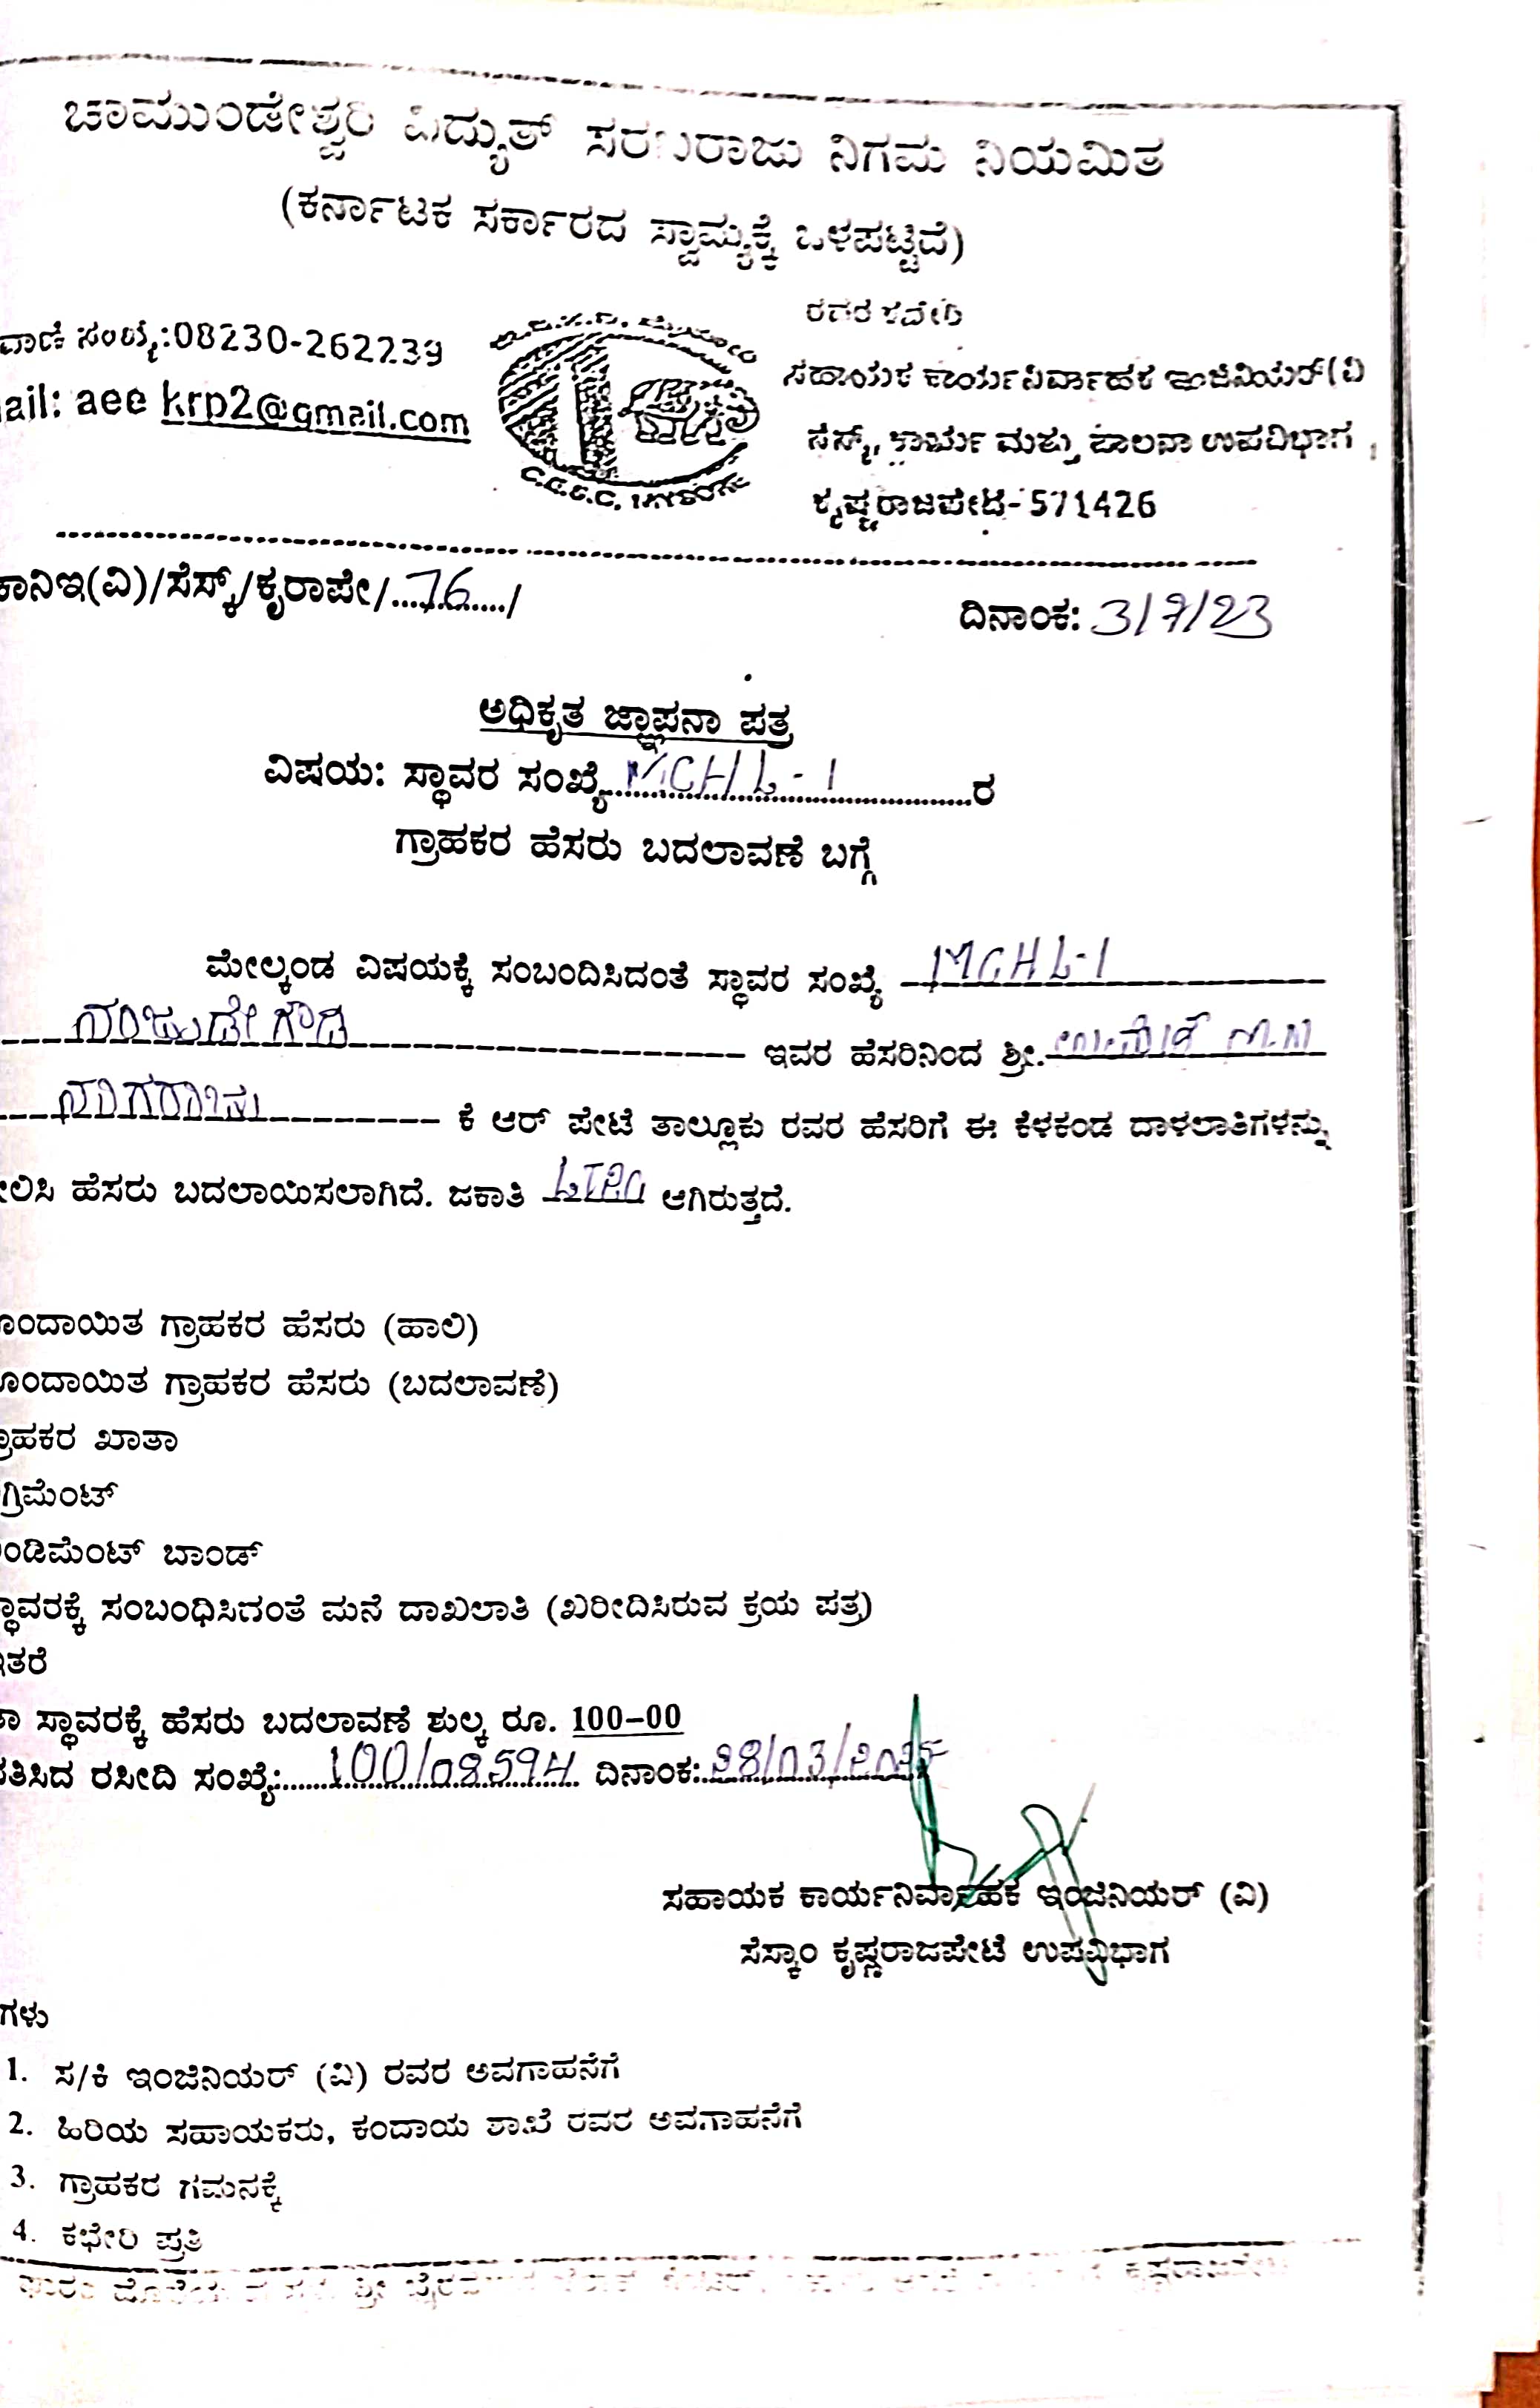 ಚಾಮುಂಡೇಶ್ವರಿ ವಿದ್ಯುತ್ ಸರಬರಾಜು ನಿಗಮ ನಿಯಮಿತ
(ಕರ್ನಾಟಕ ಸರ್ಕಾರದ ಸ್ವಾಮ್ಯಕ್ಕೆ ಒಳಪಟ್ಟಿದೆ)
ರವರ ಕಛೇರಿ
ವಾಣಿ ಸಂಖ್ಯೆ:08230-262239
ಸಹಾಯಕ ಕಾರ್ಯನಿರ್ವಾಹಕ ಇಂಜಿನಿಯರ್(ವಿ
ail: aee krp2@gmail.com
ಸೆಸ್ಕ್, ಕಾರ್ಯ ಮತ್ತು ಪಾಲನಾ ಉಪವಿಭಾಗ,
C.E.S.C. MYSORE
ಕೃಷ್ಣರಾಜಪೇಟೆ-571426
ಕಾನಿಇ(ವಿ)/ಸೆಸ್ಕ್/ಕೃರಾಪೇ/...76.../
ದಿನಾಂಕ: 3/7/23
ಅಧಿಕೃತ ಜ್ಞಾಪನಾ ಪತ್ರ
ವಿಷಯ: ಸ್ಥಾವರ ಸಂಖ್ಯೆ MCHL-1 ರ
ಗ್ರಾಹಕರ ಹೆಸರು ಬದಲಾವಣೆ ಬಗ್ಗೆ
ಮೇಲ್ಕಂಡ ವಿಷಯಕ್ಕೆ ಸಂಬಂದಿಸಿದಂತೆ ಸ್ಥಾವರ ಸಂಖ್ಯೆ MCHL-1
ನಂಜುಡೇಗೌಡ ಇವರ ಹೆಸರಿನಿಂದ ಶ್ರೀ.
ಕೆ ಆರ್ ಪೇಟೆ ತಾಲ್ಲೂಕು ರವರ ಹೆಸರಿಗೆ ಈ ಕೆಳಕಂಡ ದಾಳಲಾತಿಗಳನ್ನು
ಲಿಸಿ ಹೆಸರು ಬದಲಾಯಿಸಲಾಗಿದೆ. ಜಕಾತಿ ಆಗಿರುತ್ತದೆ.
ಂದಾಯಿತ ಗ್ರಾಹಕರ ಹೆಸರು (ಹಾಲಿ)
ಂದಾಯಿತ ಗ್ರಾಹಕರ ಹೆಸರು (ಬದಲಾವಣೆ)
ಗ್ರಾಹಕರ ಖಾತಾ
ಗ್ರಿಮೆಂಟ್
ಂಡಿಮೆಂಟ್ ಬಾಂಡ್
ಸ್ಥಾವರಕ್ಕೆ ಸಂಬಂಧಿಸಿದಂತೆ ಮನೆ ದಾಖಲಾತಿ (ಖರೀದಿಸಿರುವ ಕ್ರಯ ಪತ್ರ)
ಇತರೆ
ಸ್ಥಾವರಕ್ಕೆ ಹೆಸರು ಬದಲಾವಣೆ ಶುಲ್ಕ ರೂ. 100-00
ತಿಸಿದ ರಸೀದಿ ಸಂಖ್ಯೆ: 100/08594 ದಿನಾಂಕ: 28/03/
ಸಹಾಯಕ ಕಾರ್ಯನಿರ್ವಾಹಕ ಇಂಜಿನಿಯರ್ (ವಿ)
ಸೆಸ್ಕಾಂ ಕೃಷ್ಣರಾಜಪೇಟೆ ಉಪವಿಭಾಗ
ಗಳು
1. ಸ/ಕಿ ಇಂಜಿನಿಯರ್ (ವಿ) ರವರ ಅವಗಾಹನೆಗೆ
2. ಹಿರಿಯ ಸಹಾಯಕರು, ಕಂದಾಯ ಶಾಖೆ ರವರ ಅವಗಾಹನೆಗೆ
3. ಗ್ರಾಹಕರ ಗಮನಕ್ಕೆ
4. ಕಛೇರಿ ಪ್ರತಿ